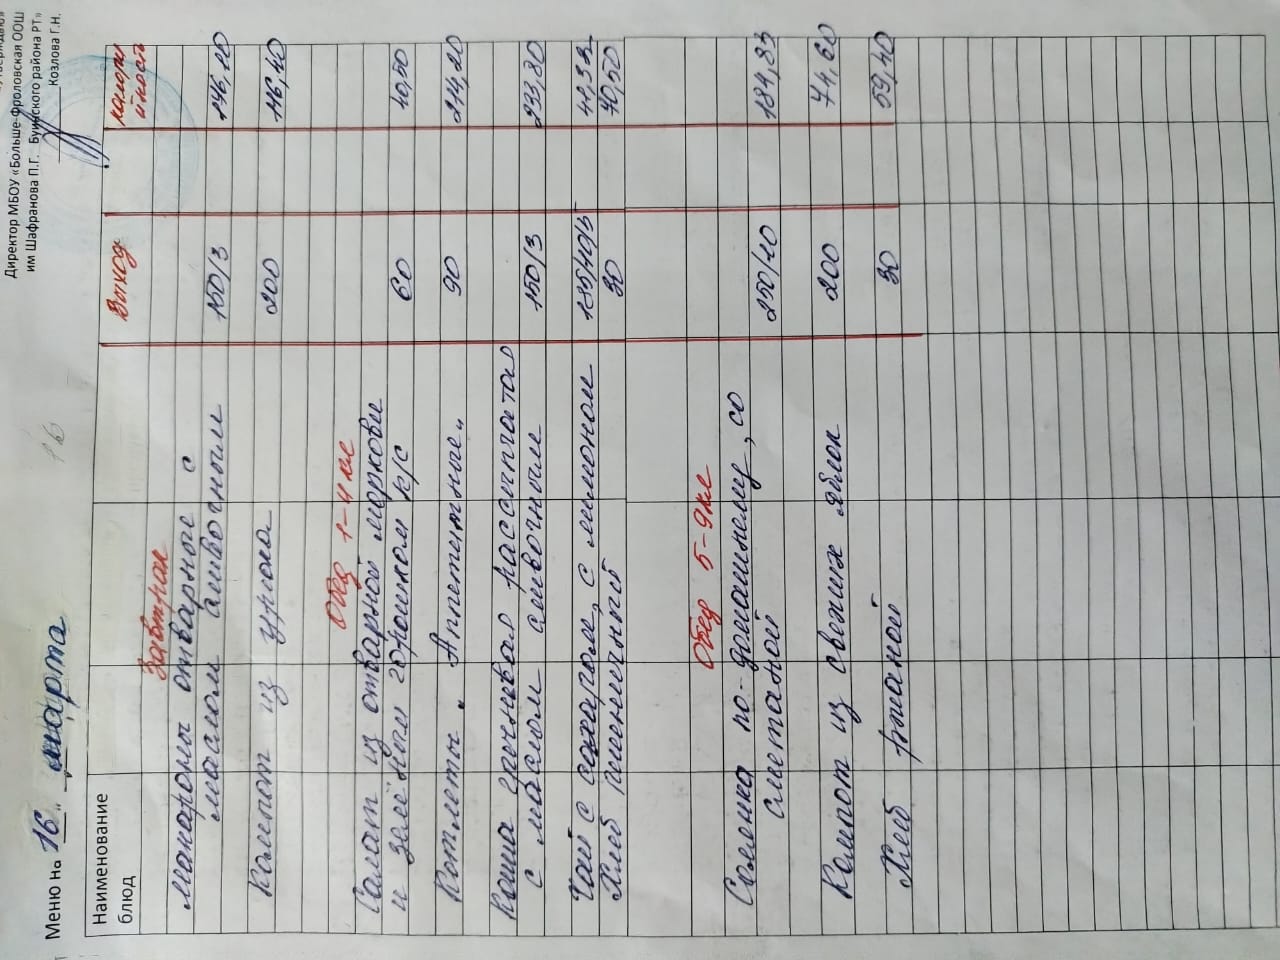 Директор МБОУ «Больше-Фроловская ООШ
им Шафранова П.Г. Буинского района РТ»
Козлова Г.Н.
Меню на "16" марта
Наименование блюд Выход калорийность
Завтрак
Макароны отварные с
маслом сливочным 150/3 146,20
Компот из урюка 200 116,40
Обед 1-4 кл
Салат из отварной моркови
и зелёным горошком к/с 60 40,50
Котлеты "Аппетитные" 90 214,20
Каша гречневая рассыпчатая
с маслом сливочным 150/3 233,80
Чай с сахаром, с лимоном 185/10/5
Хлеб пшеничный 30 70,50
Обед 5-9 кл
Солянка по-домашнему, со
сметаной 250/10 184,83
Компот из свежих яблок 200 74,60
Хлеб ржаной 30 59,40